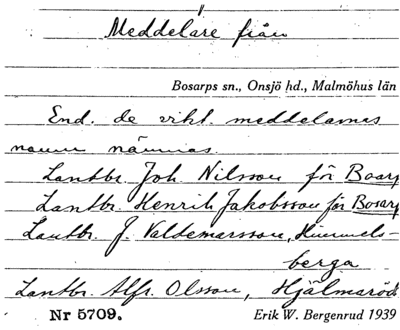 Meddelare från
Bosarps sn., Onsjö hd., Malmöhus län
End. de vikt. meddelarnas
namn nämnas.
Lantbr. Joh. Nilsson för Boarp
Lantbr. Henrik Jakobsson för Bosarp
Lantbr. J. Valdemarsson, Himmels-
berga
Lantbr. Alfr. Olsson, Hjälmaröd
Nr 5709. Erik W. Bergenrud 1939